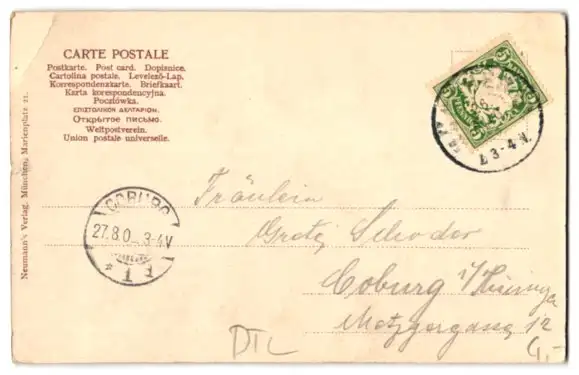 CARTE POSTALE
Postkarte. Post card. Dopisnice.
Cartolina postale. Levelező-Lap.
Korrespondenzkarte. Briefkaart.
Karta korespondencyjna.
Pocztówka.
ΕΠΙΣΤΟΛΙΚΟΝ ΔΕΛΤΑΡΙΟΝ.
Открытое письмо.
Weltpostverein.
Union postale universelle.
Neumann's Verlag, München, Marienplatz 21.
5
5
3-4 N.
COBURG
27.8.0 3-4V
* 1 1
Fräulein
Grete Schoder
Coburg i/Thüringen
Metzgergasse 12
DTL
4,-